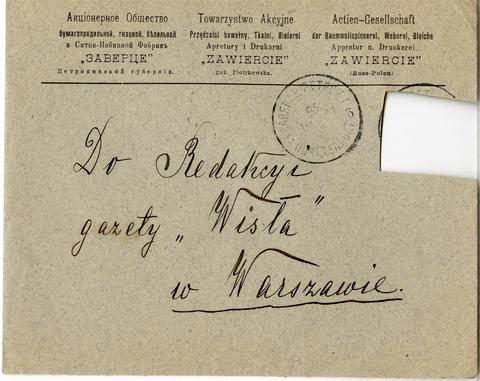 Акціонерное Общество
бумагопрядильной, ткацкой, бѣлильной
и Ситце-Набивной Фабрикъ
„ЗАВЕРЦЕ”
Петроковской губерніи.
Towarzystwo Akcyjne
Przędzalni bawełny, Tkalni, Bielarni
Apretury i Drukarni
„ZAWIERCIE”
gub. Piotrkowska.
Actien-Gesellschaft
der Baumwollspinnerei, Weberei, Bleiche
Appretur u. Druckerei
„ZAWIERCIE”
(Russ-Polen)
Do Redakcyi
gazety „Wisła”
w Warszawie.